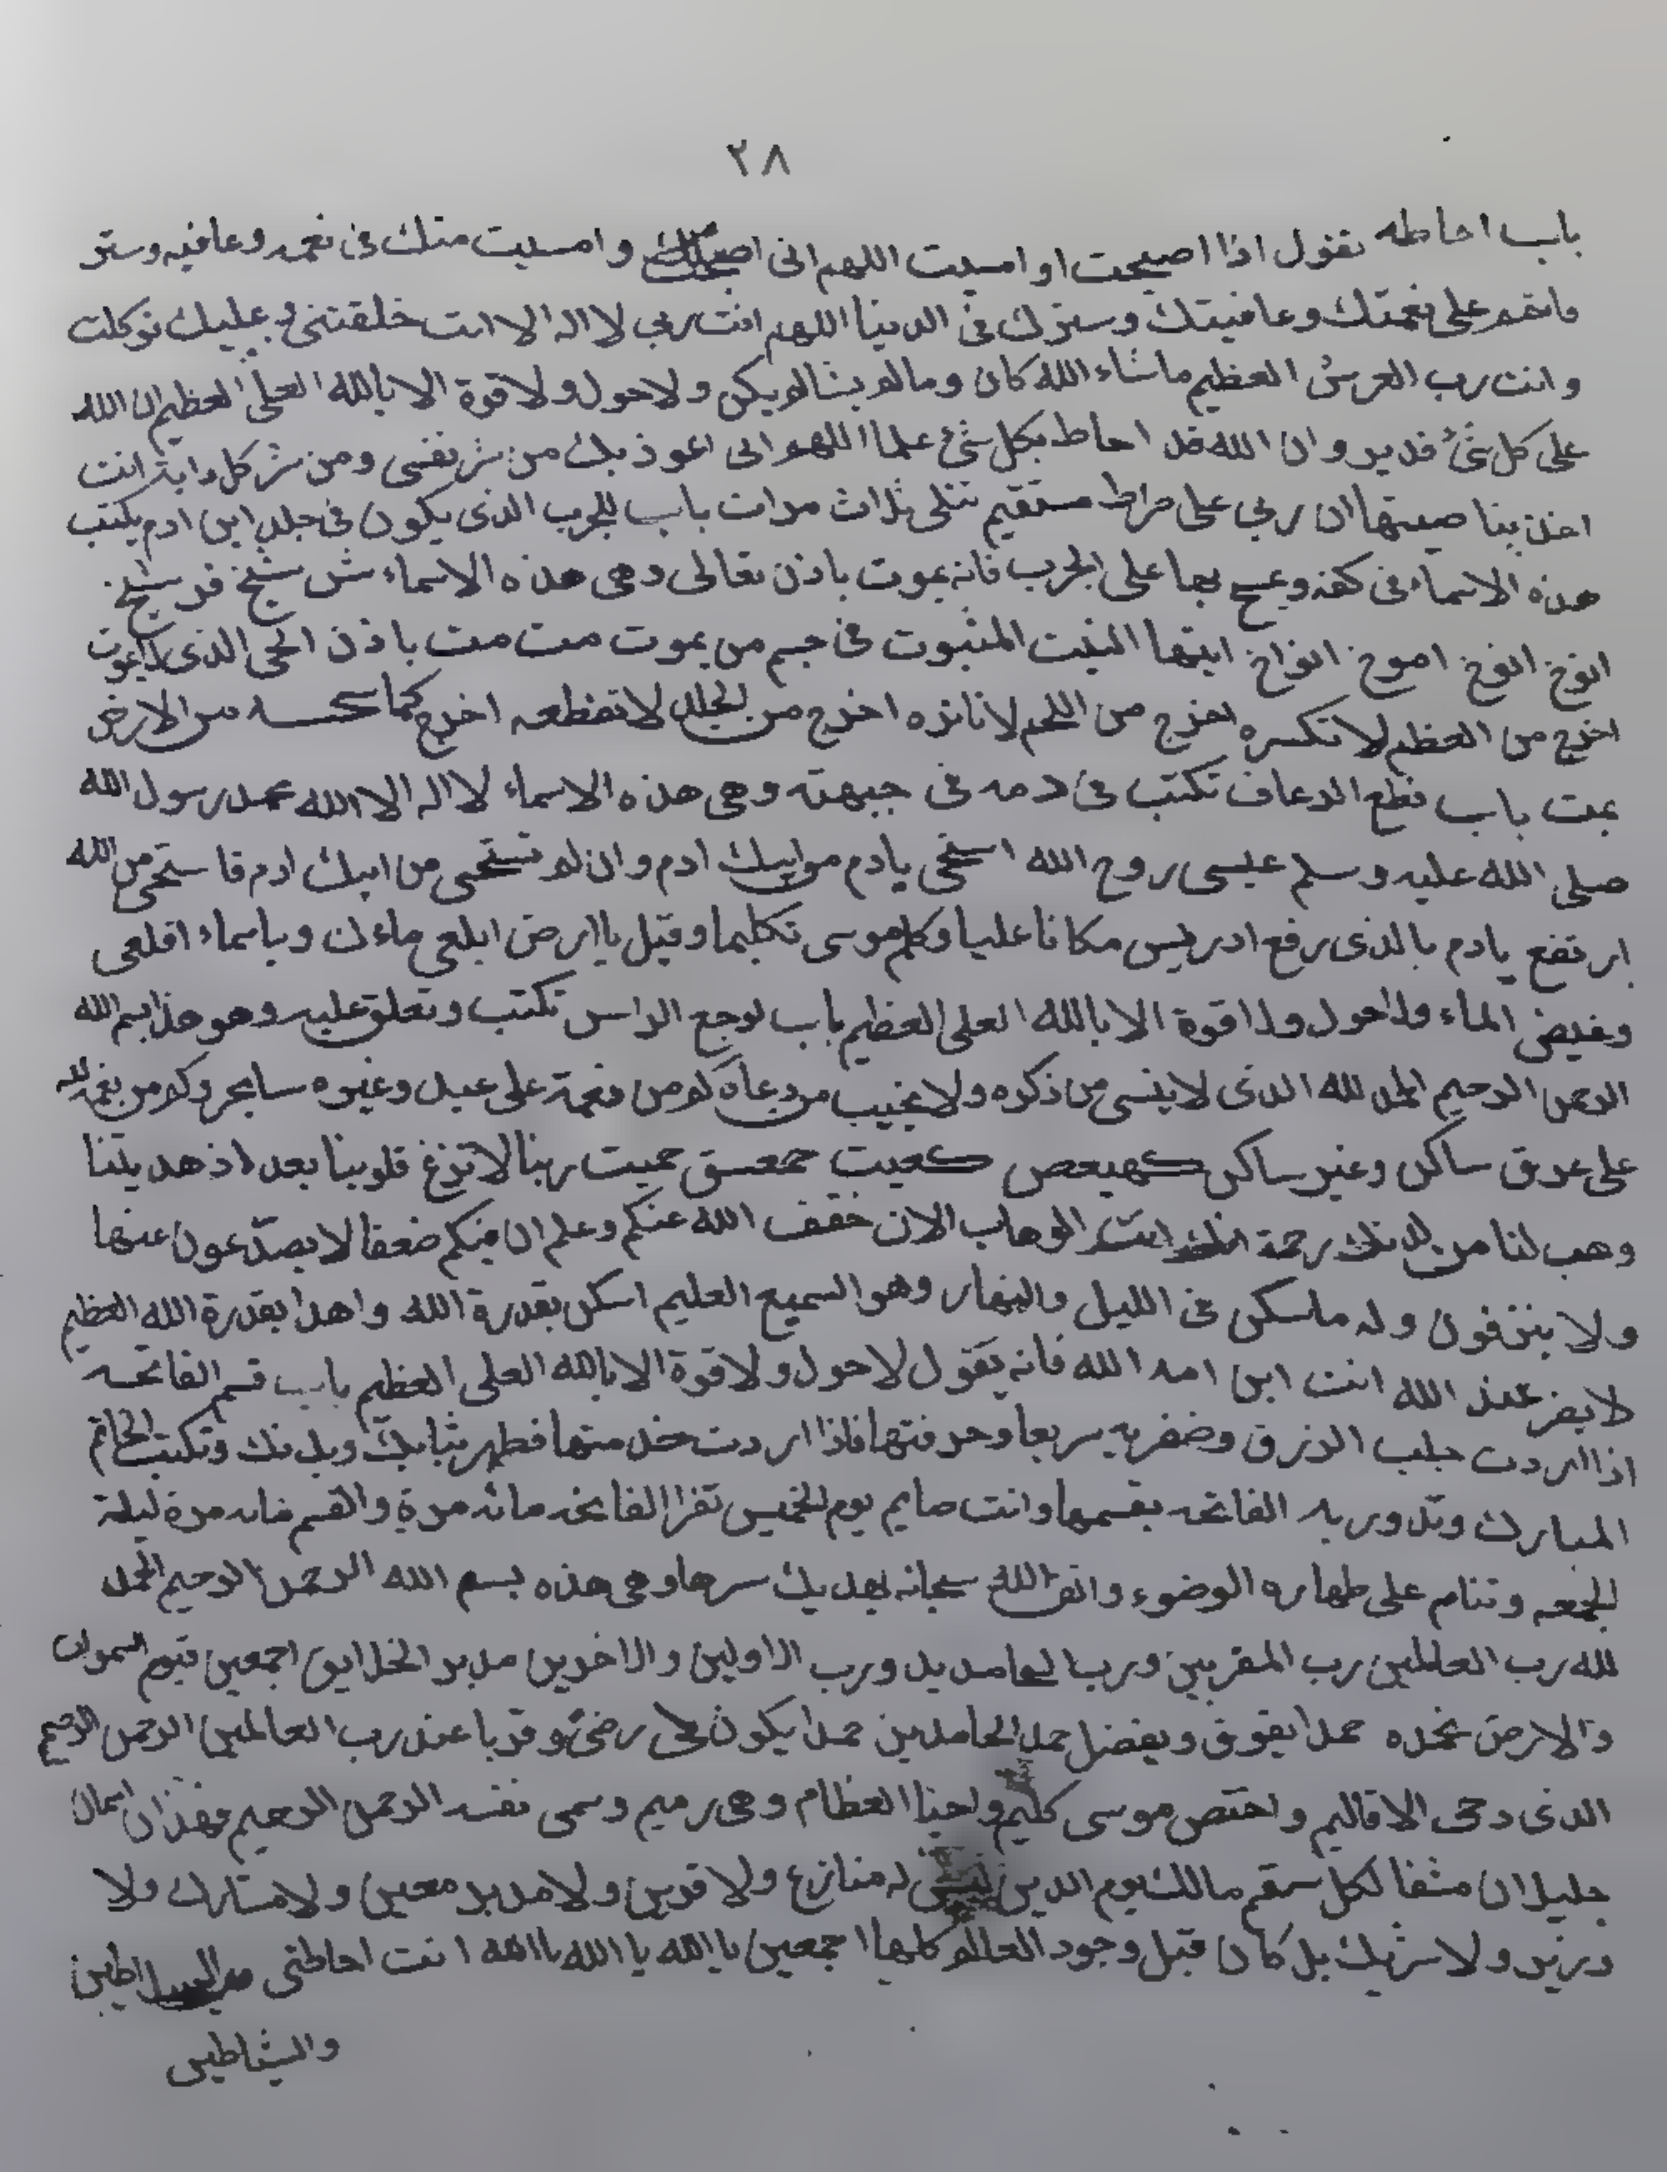 ٢٨
باب احاطه تقول اذا اصبحت او امسيت اللهم انى اصبحت و امسيت منك فى نعمه وعافيه وستر
فاتمم على نعمتك وعافيتك وسترك فى الدنيا اللهم انت ربى لا اله الا انت خلقتنى وعليك توكلت
و انت رب العرش العظيم ماشاء الله كان ومالم يشا لم يكن ولاحول ولا قوة الا بالله العلى العظيم ان الله
على كل شئ قدير وان الله قد احاط بكل شئ علما اللهم انى اعوذ بك من شر نفسى ومن شر كل دابة انت
اخذ بناصيتها ان ربى على صراط مستقيم تتلى ثلاث مرات باب للجرب الذى يكون فى جلد ابن ادم يكتب
هذه الاسماء فى كفه ويمسح بها على الجرب فانه يموت باذن تعالى وهى هذه الاسماء ش شيخ قد شيخ
انوخ انوخ اموخ انواخ ايتها النبت المنبوت فى جسم من يموت مت مت باذن الحى الذى لايموت
اخرج من العظم لا تكسره اخرج من اللحم لا اخرج من الجلد لا تقطعه اخرج كما من الارض
تمت باب قطع الرعاف تكتب فى دمه فى جبهته وهى هذه الاسماء لا اله الا الله محمد رسول الله
صلى الله عليه وسلم عيسى روح الله استحى يادم من ابيك ادم وان لم تستحى من ابيك ادم فاستحى من الله
ارتفع يادم بالذى رفع ادريس مكانا عليا وكلم موسى تكليما وقيل ياارض ابلعى ماءك وياسماء اقلعى
وغيض الماء ولاحول ولا قوة الا بالله العلى العظيم باب لوجع الراس تكتب وتعلق عليه وهو هذا بسم الله
الرحمن الرحيم الحمد لله الذى لاينسى من ذكره ولا يخيب من دعاه كم من نعمة على عبد وغيره وكم من نعمة لله
على عرق ساكن وغير ساكن كهيعص كعيت حمعسق حميت ربنا لا تزغ قلوبنا بعد اذ هديتنا
وهب لنا من لدنك رحمة انك انت الوهاب الان خفف الله عنكم وعلم ان فيكم ضعفا لا يصدّعون عنها
ولا ينزفون وله ماسكن فى الليل والنهار وهو السميع العليم اسكن بقدرة الله واهدا بقدرة الله العظيم
عند الله انت ابن امه الله فانه يقول لاحول ولا قوة الا بالله العلى العظيم باب قسم الفاتحه
اذا اردت جلب الرزق وضفر به سريعا فاذا اردت خدمتها فطهر ثيابك وبدنك وتكتب الخاتم
المبارك وتدور به الفاتحه بقسمها وانت صايم يوم الخميس تقرا الفاتحه مائه مرة والقسم مائه مرة ليلة
الجمعه وتنام على طهاره الوضوء الله سبحانه يهديك سرها وهى هذه بسم الله الرحمن الرحيم الحمد
لله رب العالمين رب المقربين ورب ورب الاولين والاخرين مدبر الخلايق اجمعين قيوم السموات
والارض نحمده حمدا يفوق ويفضل حمد الحامدين حمدا يكون لى رضىً وقربا عند رب العالمين الرحمن الرحيم
الذى دحى الاقاليم واختص موسى كليم واحيا العظام وهى رميم وسمى نفسه الرحمن الرحيم فهذان اسمان
جليلان شفا لكل سقم مالك يوم الدين ليس له منازع ولا قرين ولا مدبر معين ولا مشارك ولا
وزير ولا شريك بل كان قبل وجود العالم كلها اجمعين ياالله ياالله ياالله انت احاطتى من السلاطين
والشياطين